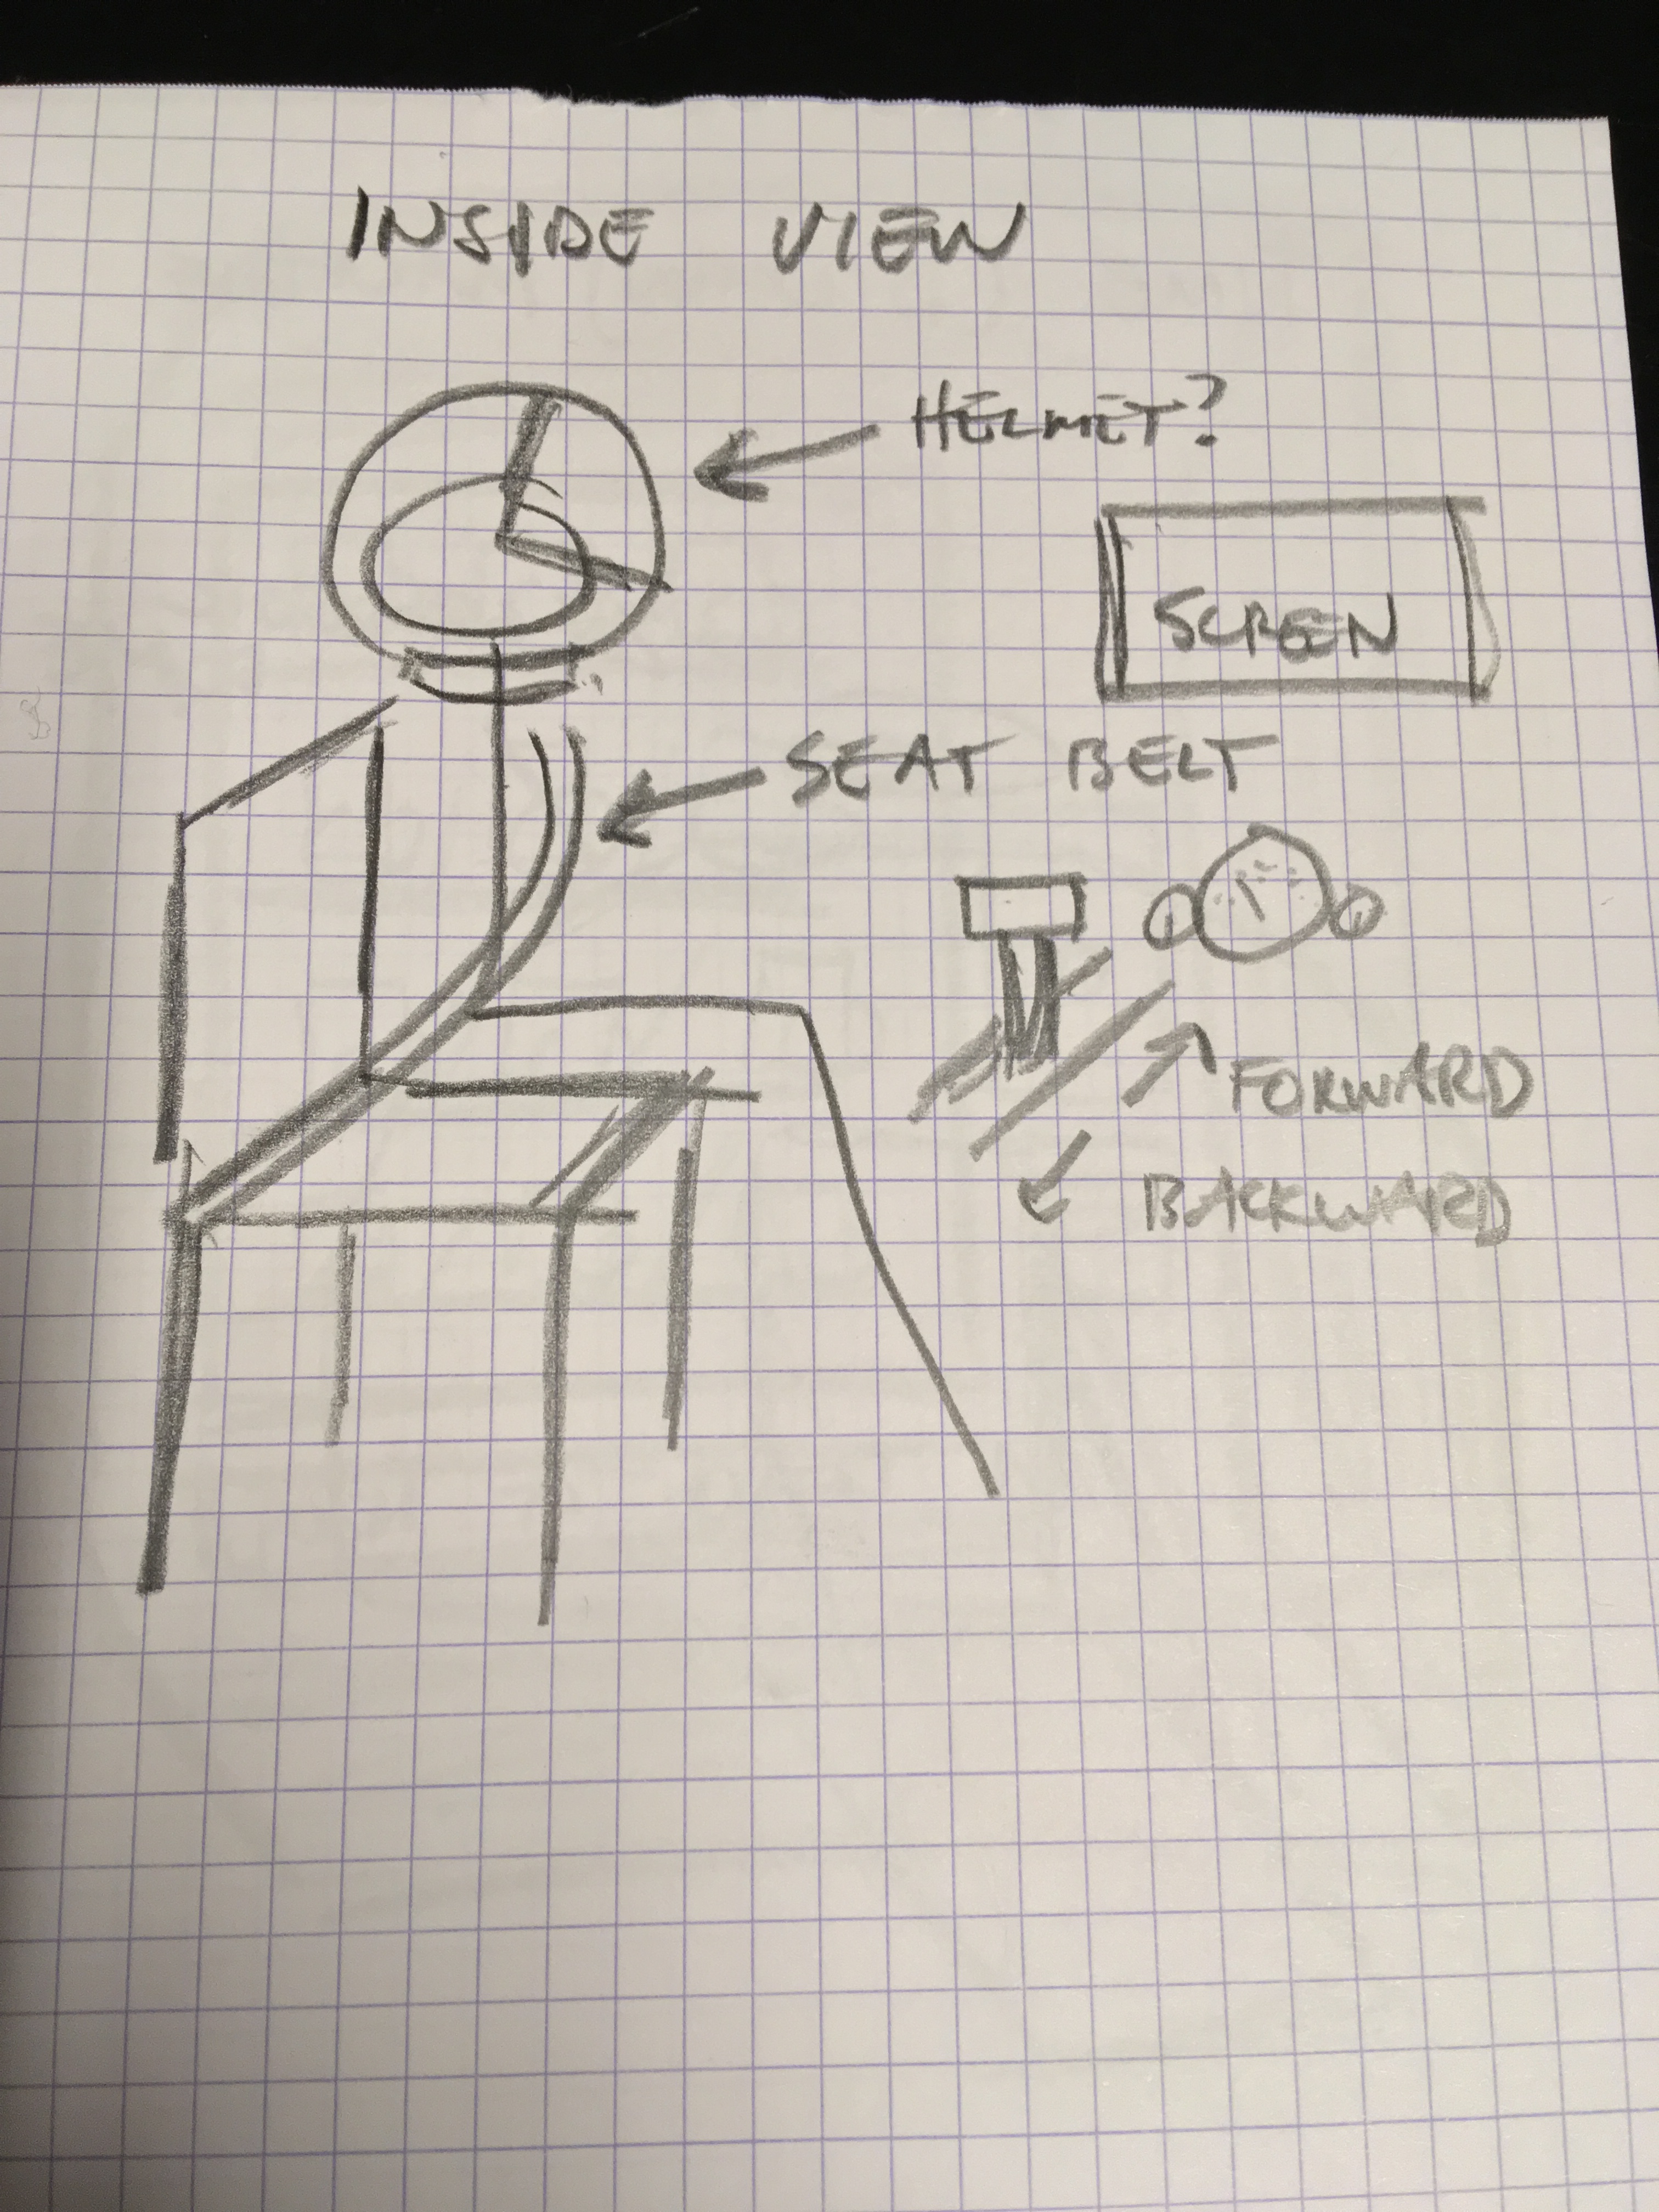 INSIDE VIEW
HELMET?
SCREEN
SEAT BELT
FORWARD
BACKWARD